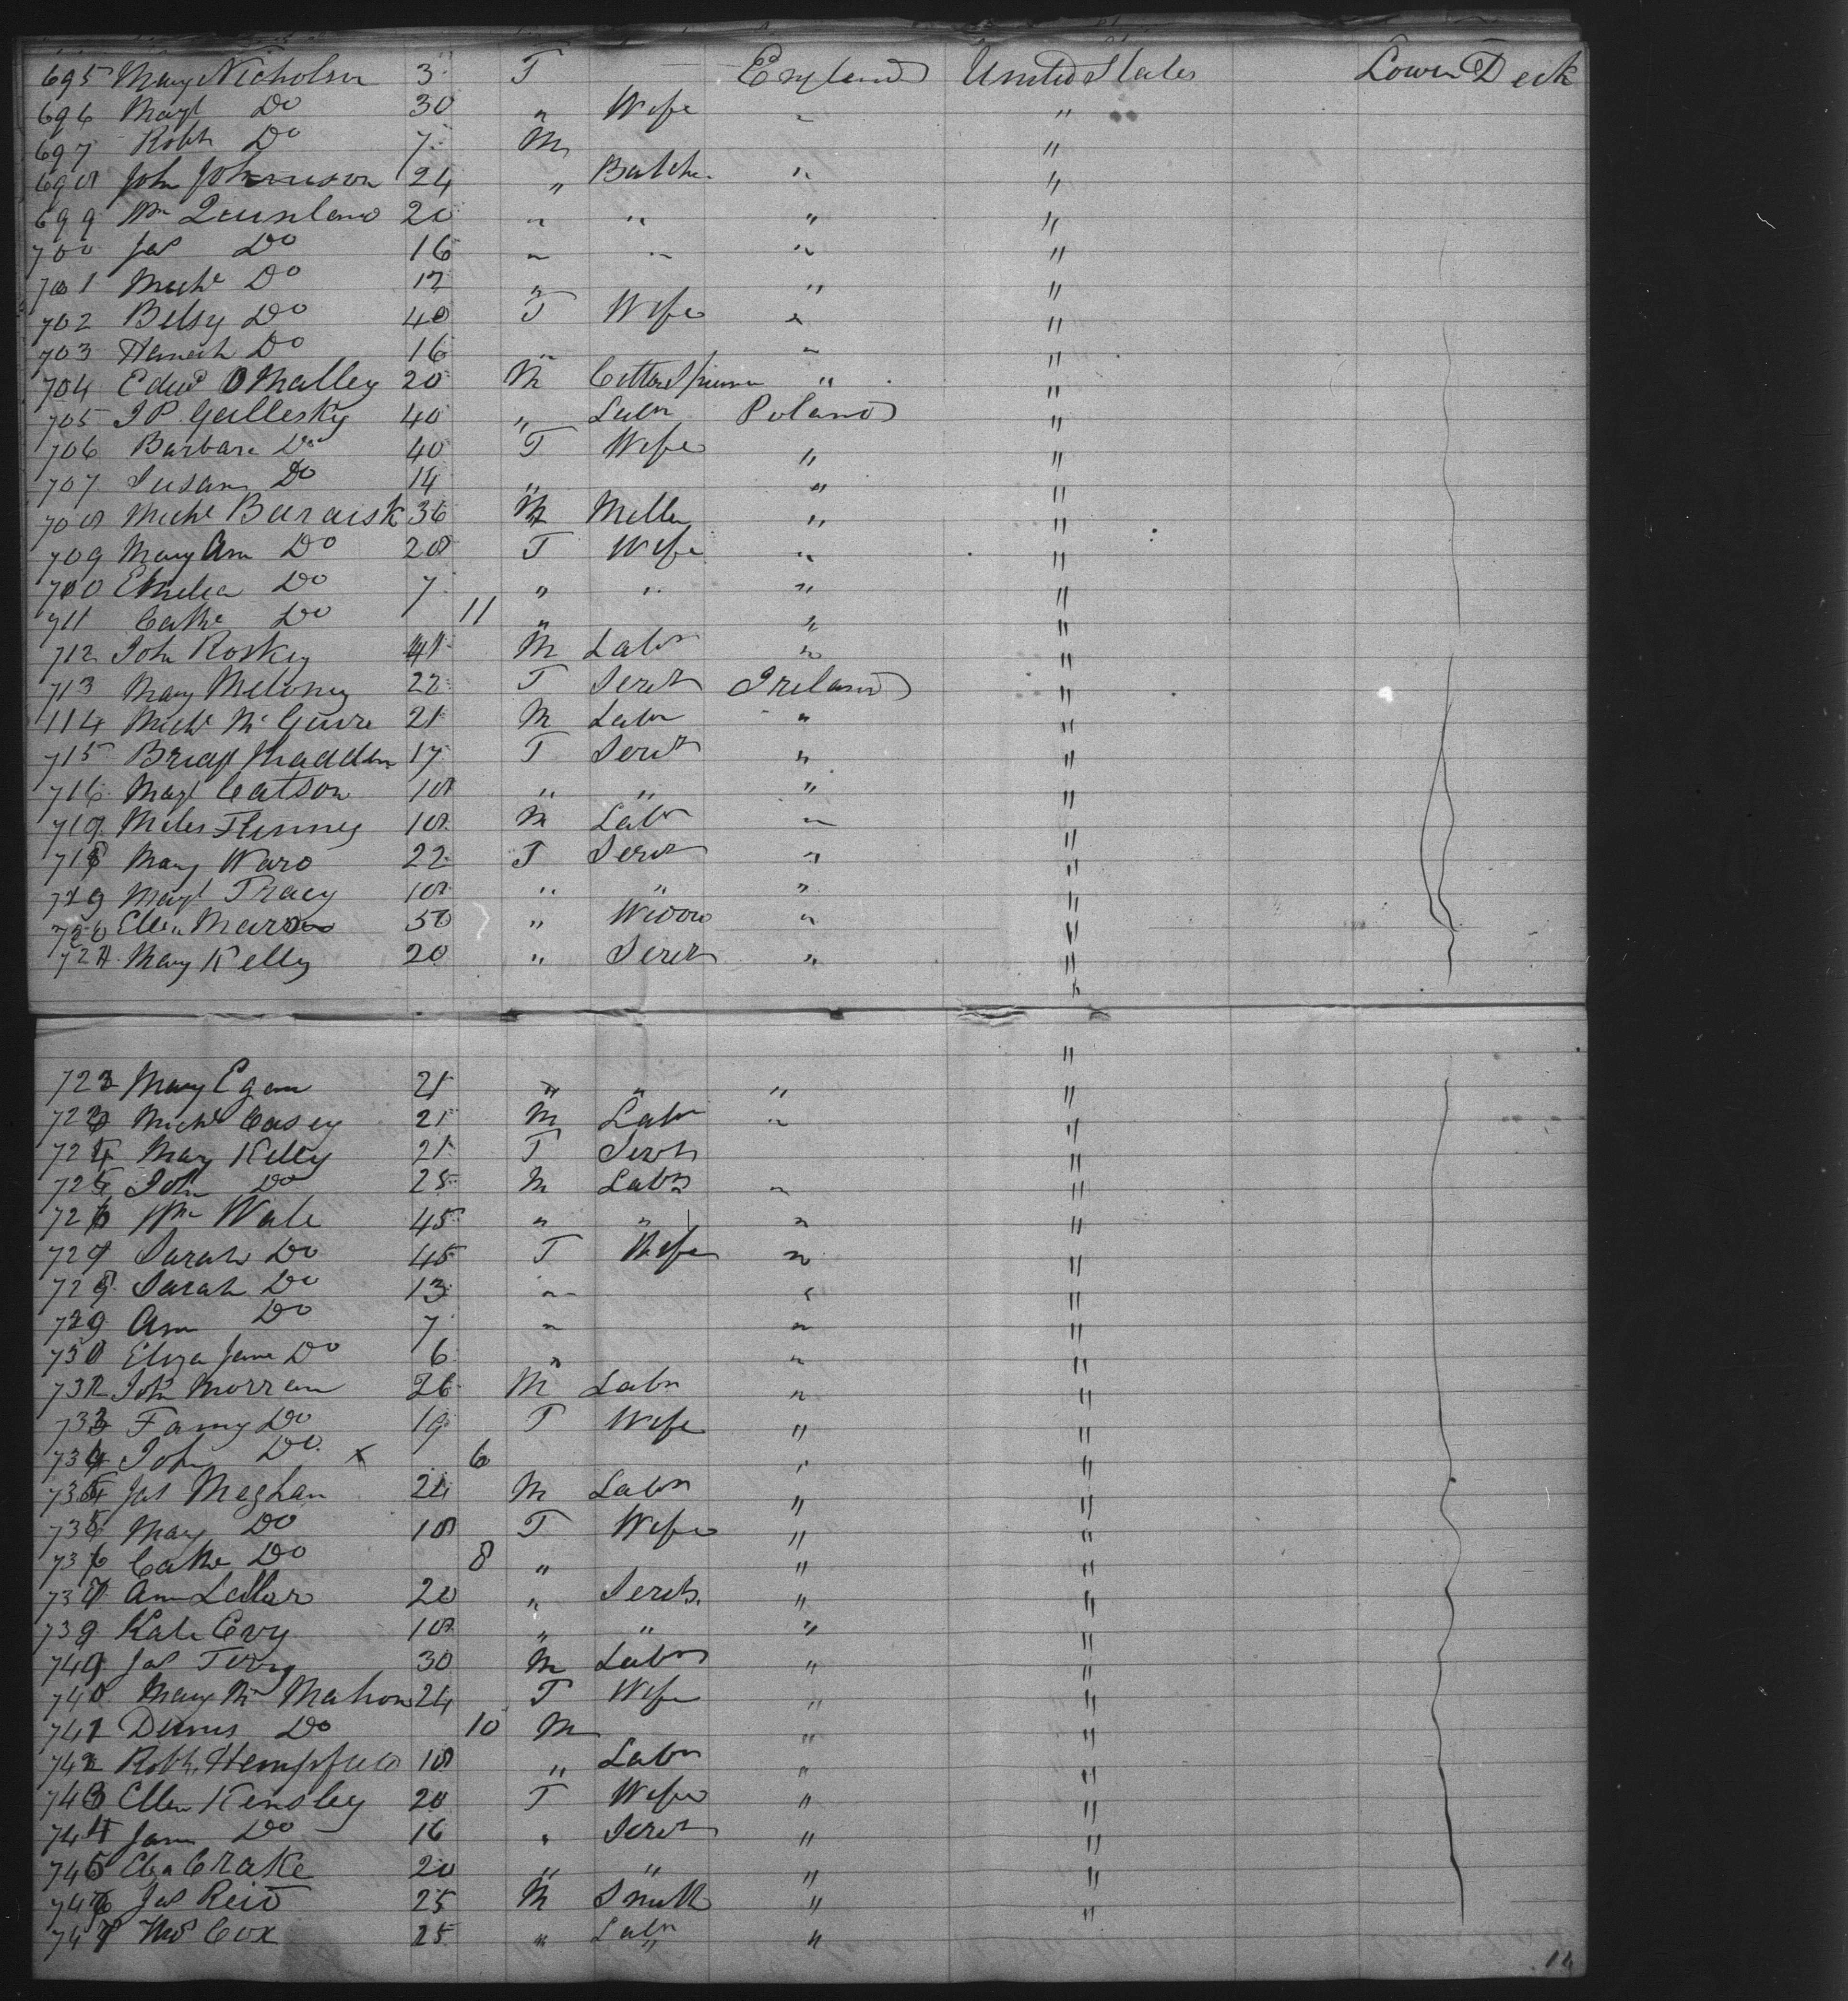 695 Mary Nicholson 3 F England United States Lower Deck
696 Margt Do 30 " Wife " "
697 Robt Do 7 M "
698 John Johnson 24 " Butcher " "
699 Wm Quinland 20 " " " "
700 Jas Do 16 " " " "
701 Michl Do 12 " " "
702 Betsy Do 40 F Wife " "
703 Hannah Do 16 " " "
704 Edwd O Malley 20 M Cotton Spinner " "
705 J P Gallesky 40 " Labr Poland "
706 Barbara Do 40 F Wife " "
707 Susan Do 14 " " "
708 Michl Buraisk 36 M Miller " "
709 Mary Ann Do 28 F Wife " "
710 Emelia Do 7 " " " "
711 Cathe Do 11 " " "
712 John Roskey 41 M Labr " "
713 Mary Meloney 22 F Servt Ireland "
114 Michl McGuire 21 M Labr " "
715 Bridt Madden 17 F Servt " "
716 Margt Catson 18 " " " "
717 Miles Finney 18 M Labr " "
718 Mary Ward 22 F Servt " "
719 Margt Tracy 18 " " " "
720 Ellen 50 " Widow " "
721 Mary Kelly 20 " Servt " "
"
"
722 Mary Egan 21 " " " "
723 Michl Casey 21 M Labr " "
724 Mary Kelly 21 F Servt "
725 John Do 25 M Labr " "
726 Wm Wale 45 " " " "
727 Sarah Do 45 F Wife " "
728 Sarah Do 13 " " "
729 Ann Do 7 " " "
730 Eliza Jane Do 6 " " "
732 John Morran 26 M Labr " "
733 Fanny Do 19 F Wife " "
734 John Do x 6 " "
735 Jas Meghan 24 M Labr " "
735 Mary Do 18 F Wife " "
736 Cathe Do 8 " " "
737 Ann 20 " Servt " "
739 Kate 18 " " " "
749 Jas Terry 30 M Labr " "
740 Mary Mc Mahon 24 F Wife " "
741 Dennis Do 10 M " "
742 Robt Hempfield 18 " Labr " "
743 Ellen Kensley 20 F Wife " "
744 Jane Do 16 " Servt " "
745 Eliza Crake 20 " " " "
746 Jas Reid 25 M Smith " "
747 Thos Cox 25 " Labr " "
14